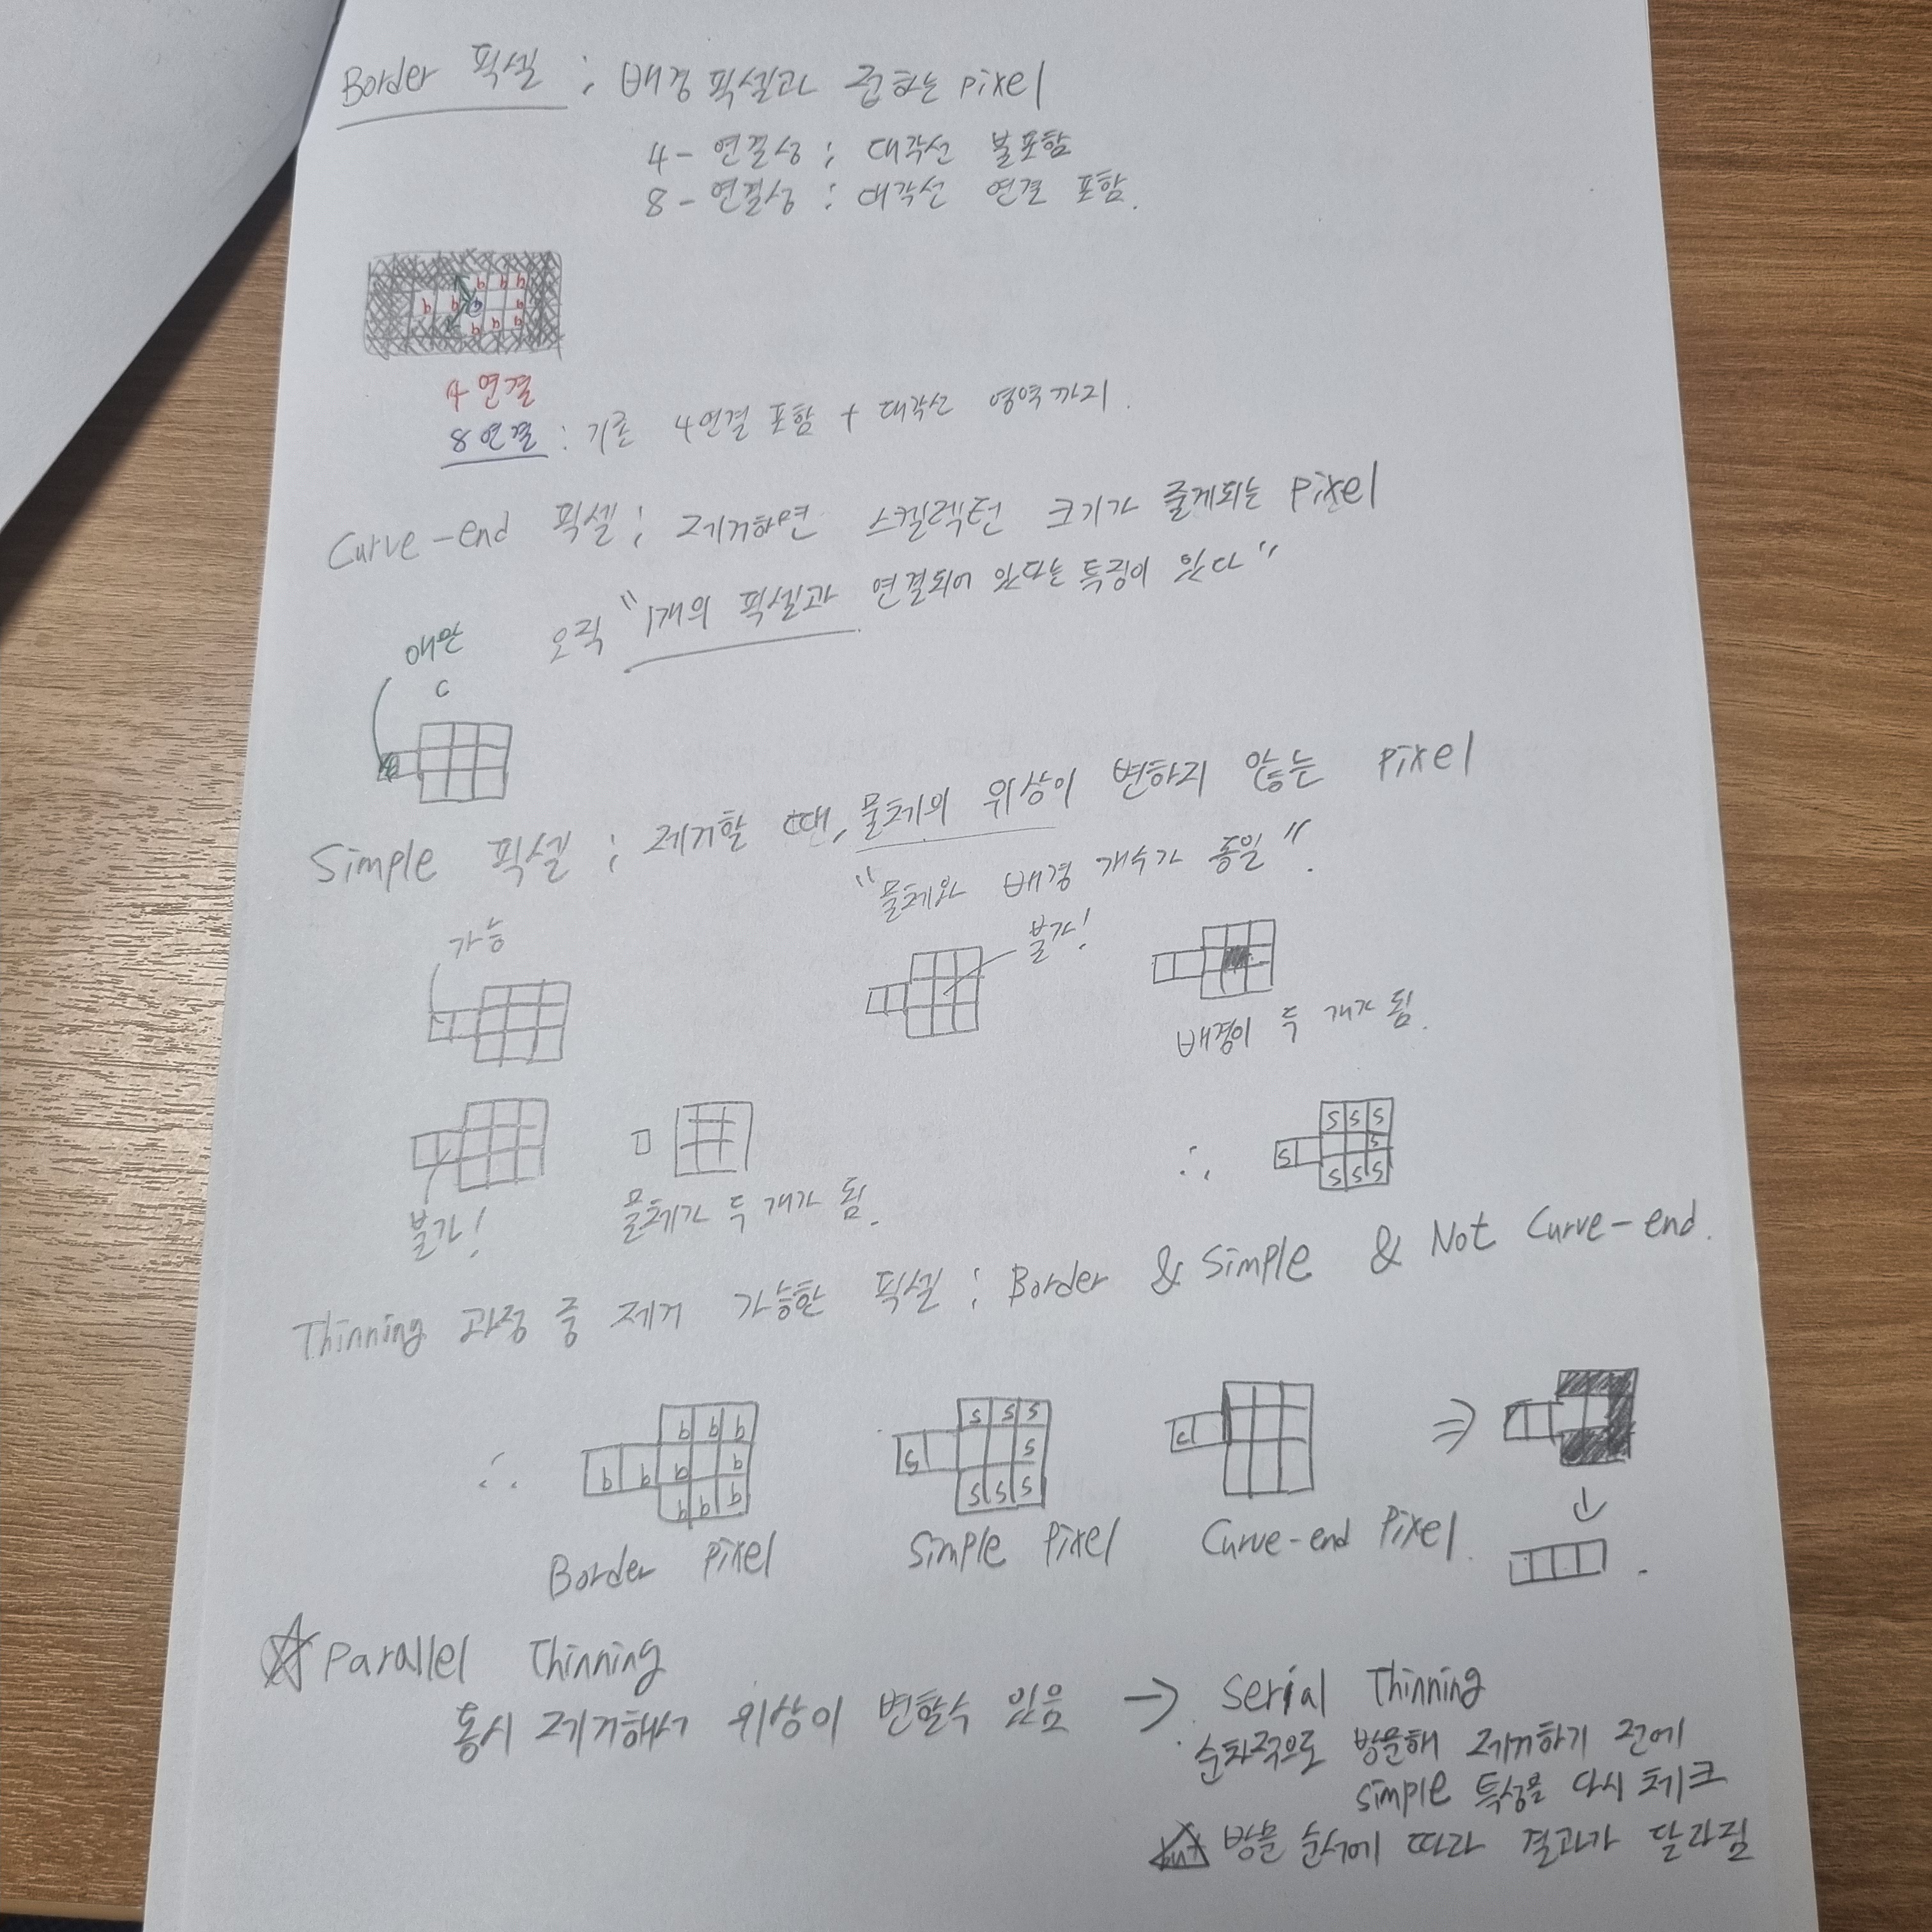 Border 픽셀 ; 배경 픽셀과 접하는 pixel
4 - 연결성 ; 대각선 불포함
8 - 연결성 : 대각선 연결 포함.
b b b
b b b b
b b b
4 연결
8 연결 : 기존 4연결 포함 + 대각선 영역까지.
Curve-end 픽셀 ; 제거하면 스켈렉턴 크기가 줄게되는 pixel
오직 "1개의 픽셀과 연결되어 있다는 특징이 있다"
얘만
C
Simple 픽셀 ; 제거할 때, 물체의 위상이 변하지 않는 pixel
"물체와 배경 개수가 동일".
가능
불가!
배경이 두 개가 됨.
불가!
물체가 두 개가 됨.
∴
S S S
S S
S S S
Thinning 과정 중 제거 가능한 픽셀 ; Border & Simple & Not Curve-end.
∴
b b b
b b b b
b b b
S S S
S S
S S S
C
⇒
Border Pixel
Simple Pixel
Curve-end Pixel.
☆ Parallel Thinning
동시 제거해서 위상이 변할수 있음 → Serial Thinning
순차적으로 방문해 제거하기 전에
simple 특성을 다시 체크
but 방문 순서에 따라 결과가 달라짐